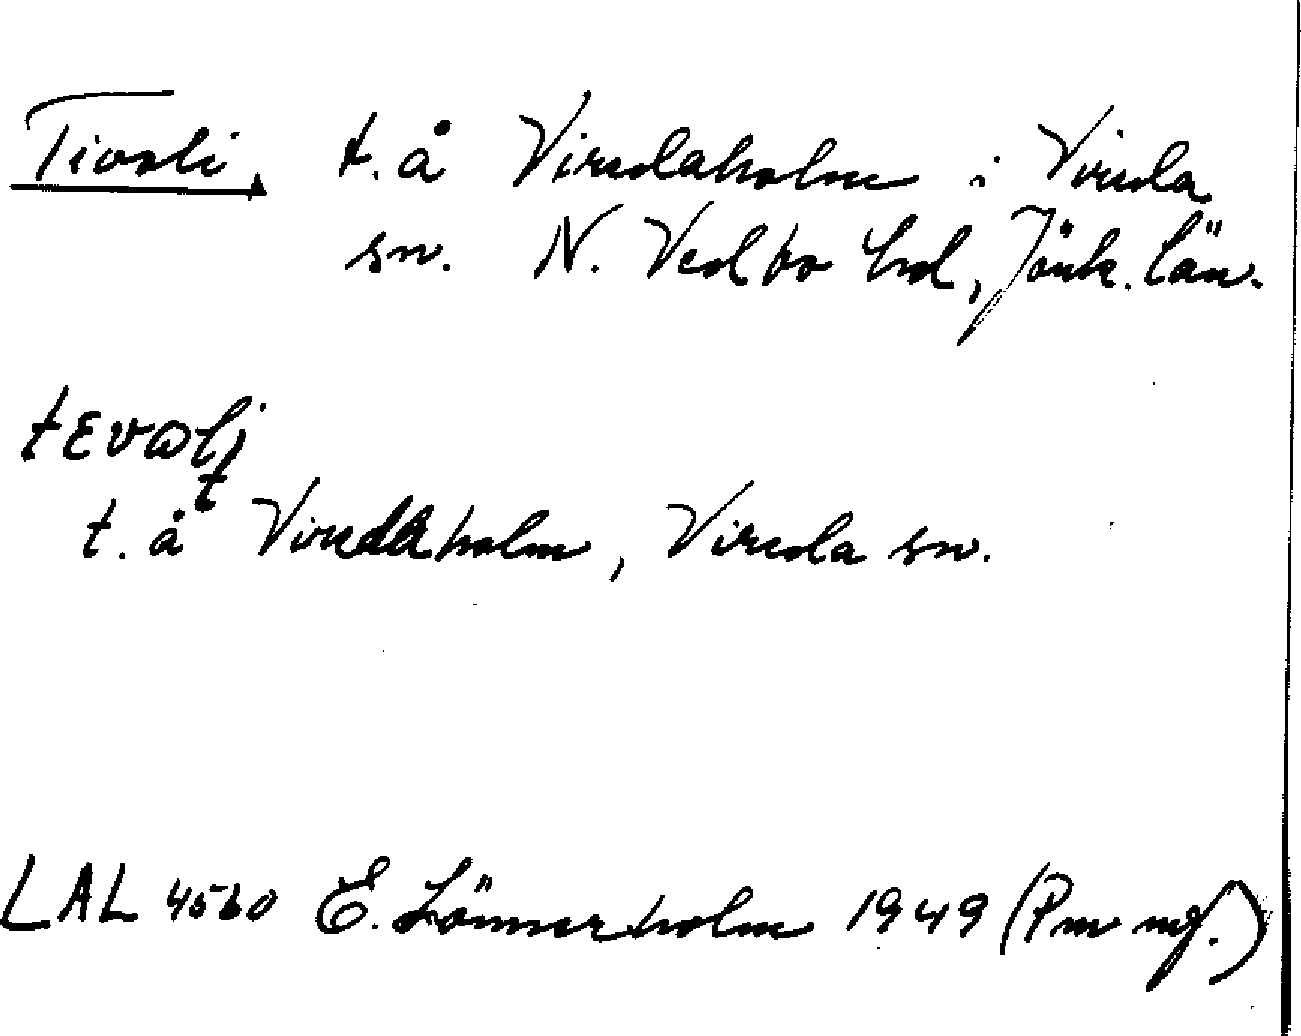 Tivoli, t. å Virsdaholm i Virsda
sn. N. Vedbo hd, Jönk. län.
tɛvωlj
t
t. å Virsdaholm, Virsda sn.
LAL 4560 E. Lönnerholm 1949 (Pm mf.)